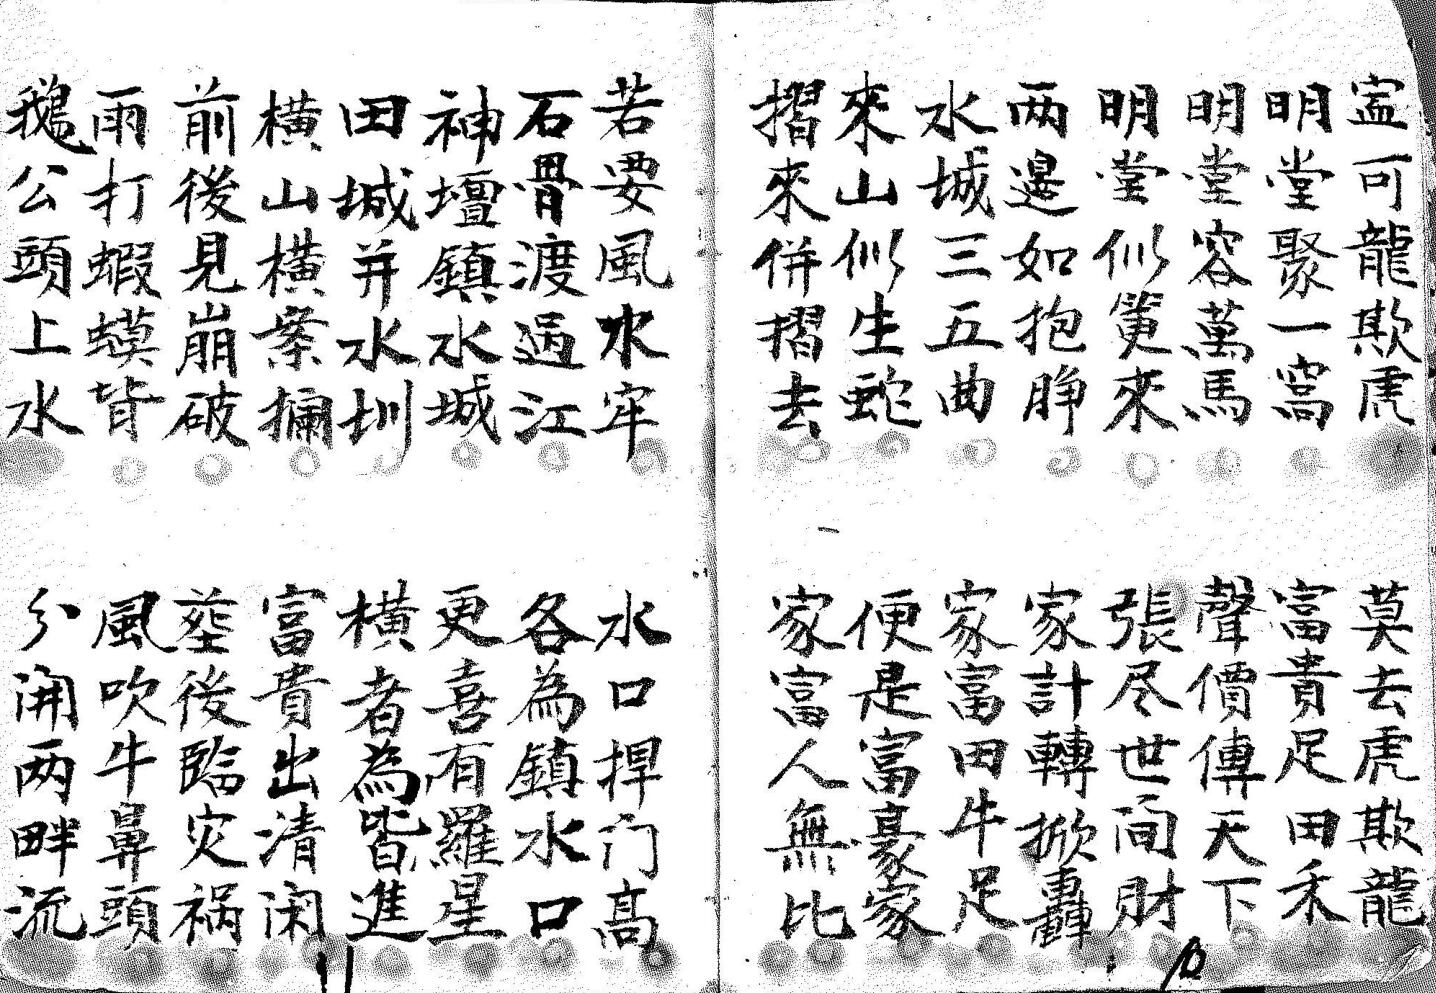 寍可龍欺虎
莫去虎欺龍
明堂聚一窩
富貴足田禾
明堂容萬馬
聲價傳天下
明堂似筻來
張尽世间財
两邉如抱睁
家計轉掀轟
水城三五曲
家富田牛足
來山似生蛇
便是富豪家
摺來併摺去
家富人無比
10
若要風水牢
水口捍门高
石骨渡過江
各為鎮水口
神壇鎮水城
更喜有羅星
田城并水圳
横者為皆進
横山横案攔
富貴出清闲
前後見崩破
塟後臨灾祸
雨打蝦蟆背
風吹牛鼻頭
鵝公頭上水
分開两畔流
11